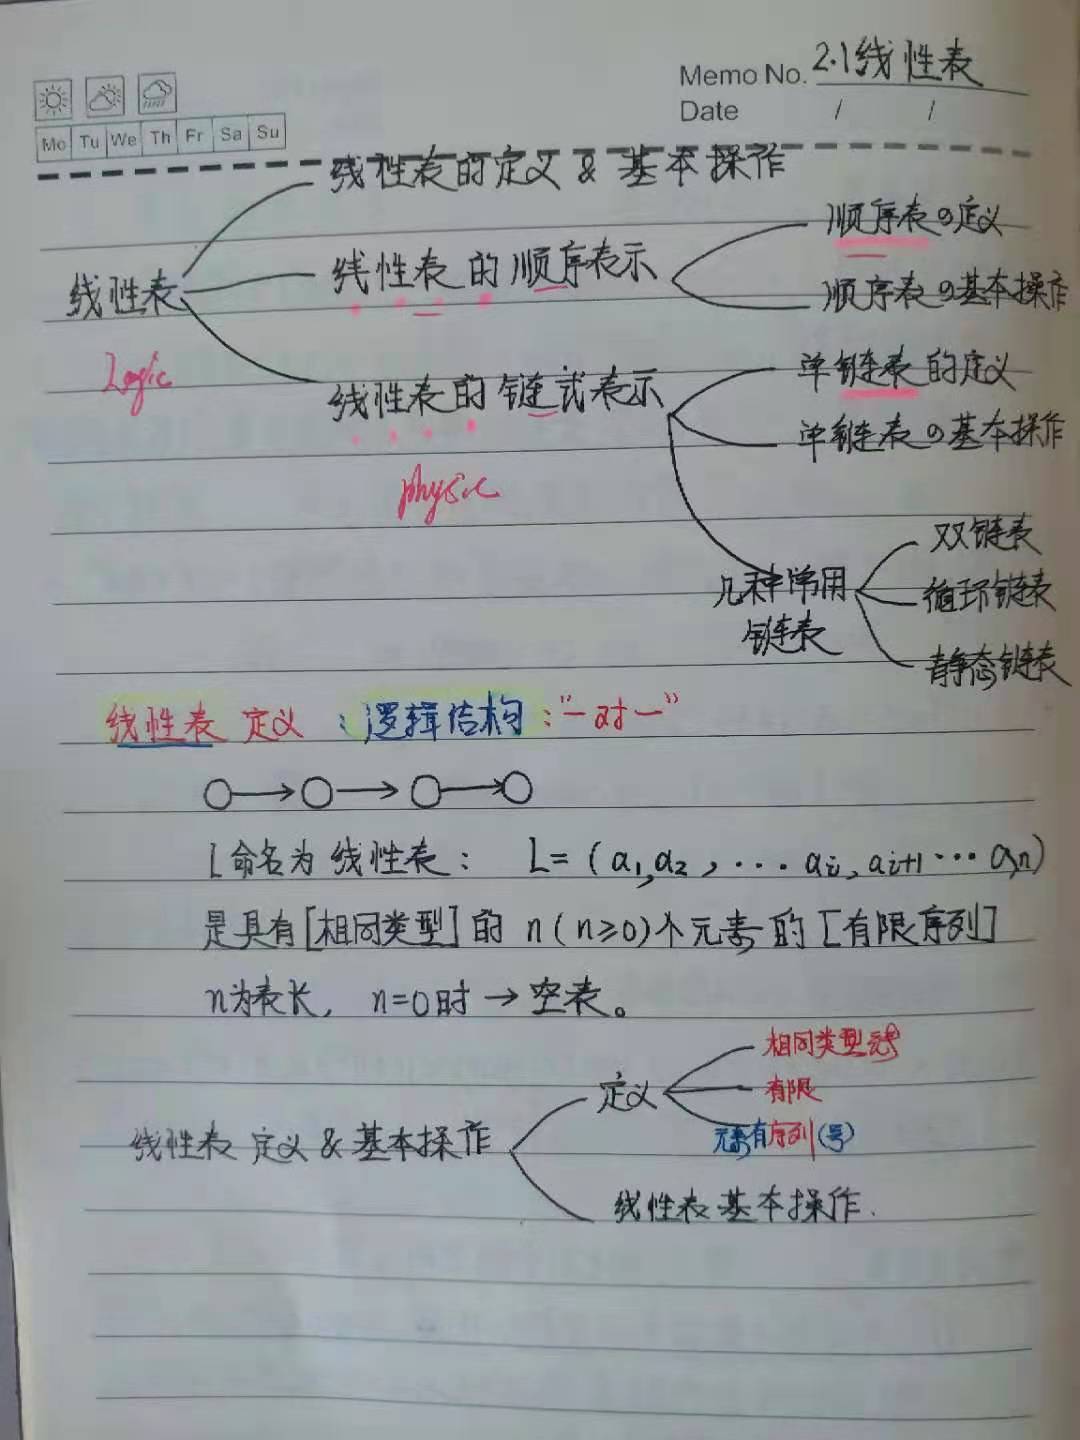 Memo No. 2.1线性表
Date / /
Mo Tu We Th Fr Sa Su
线性表的定义 & 基本操作
线性表
线性表的顺序表示
顺序表の定义
顺序表の基本操作
Logic
线性表的链式表示
单链表的定义
单链表の基本操作
physic
几种常用
链表
双链表
循环链表
静态链表
线性表 定义 : 逻辑结构 : “一对一”
L命名为 线性表: L=(a1,a2,...ai,ai+1...an)
是具有[相同类型]的 n(n≥0)个元素的[有限序列]
n为表长, n=0时→空表。
线性表 定义 & 基本操作
定义
相同类型元素
有限
元素有序列(号)
线性表基本操作.